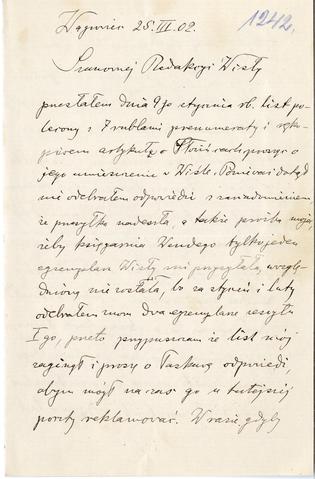 25. III. 02.
1242.
Szanownej Redakcyi Wisły
posłałem dnia 9 go stycznia rb. list po-
lecony z 7 rublami prenumeraty i ręko-
pisem artykułu o prosząc o
jego umieszczenie w Wiśle. Ponieważ dotąd
nie odebrałem odpowiedzi z zawiadomieniem,
że posyłka nadeszła, a także prośba moja,
żeby księgarnia Wendego tylko jeden
egzemplarz Wisły mi przysyłała, uwzglę-
dnioną nie została, bo za styczeń i luty
odebrałem znow dwa egzemplarze zeszytu
I go, przeto przypuszczam że list mój
zaginął i proszę o łaskawą odpowiedź,
abym mógł na zaś go u tutejszej
poczty reklamować. W razie, gdyby